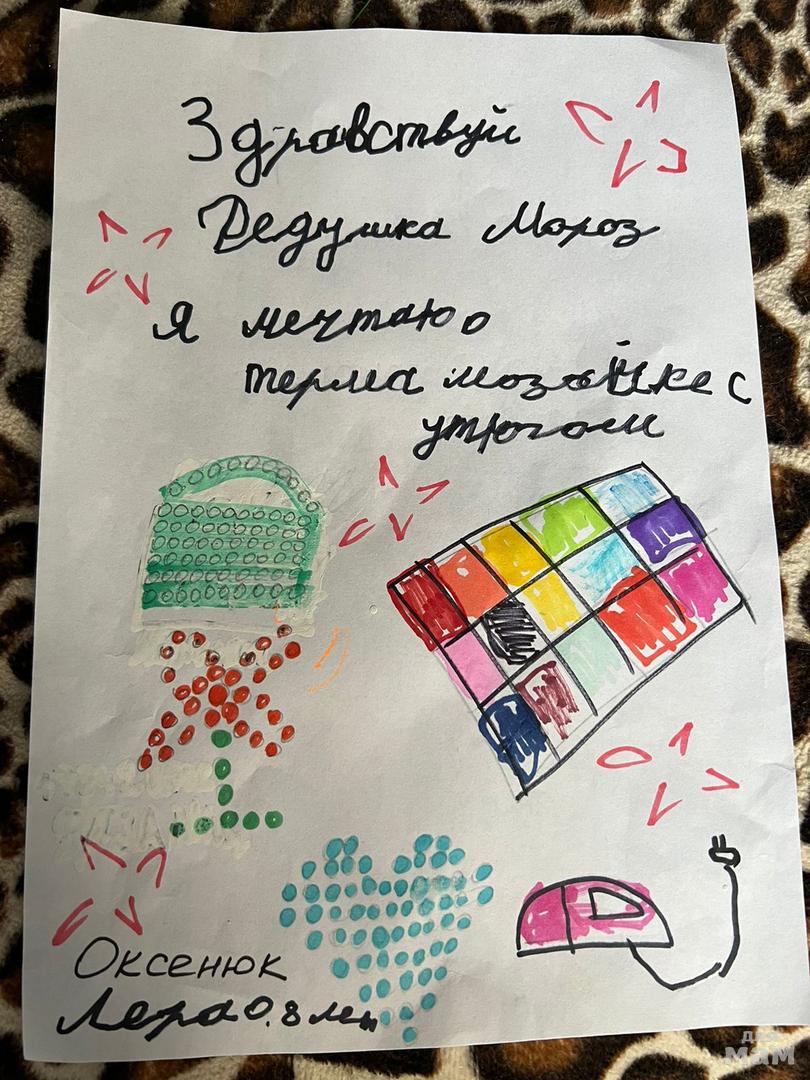 Здравствуй
Дедушка Мороз
Я мечтаю о
терма мозайке с
утюгом
Оксенюк
Лера 8 лет
для
мам